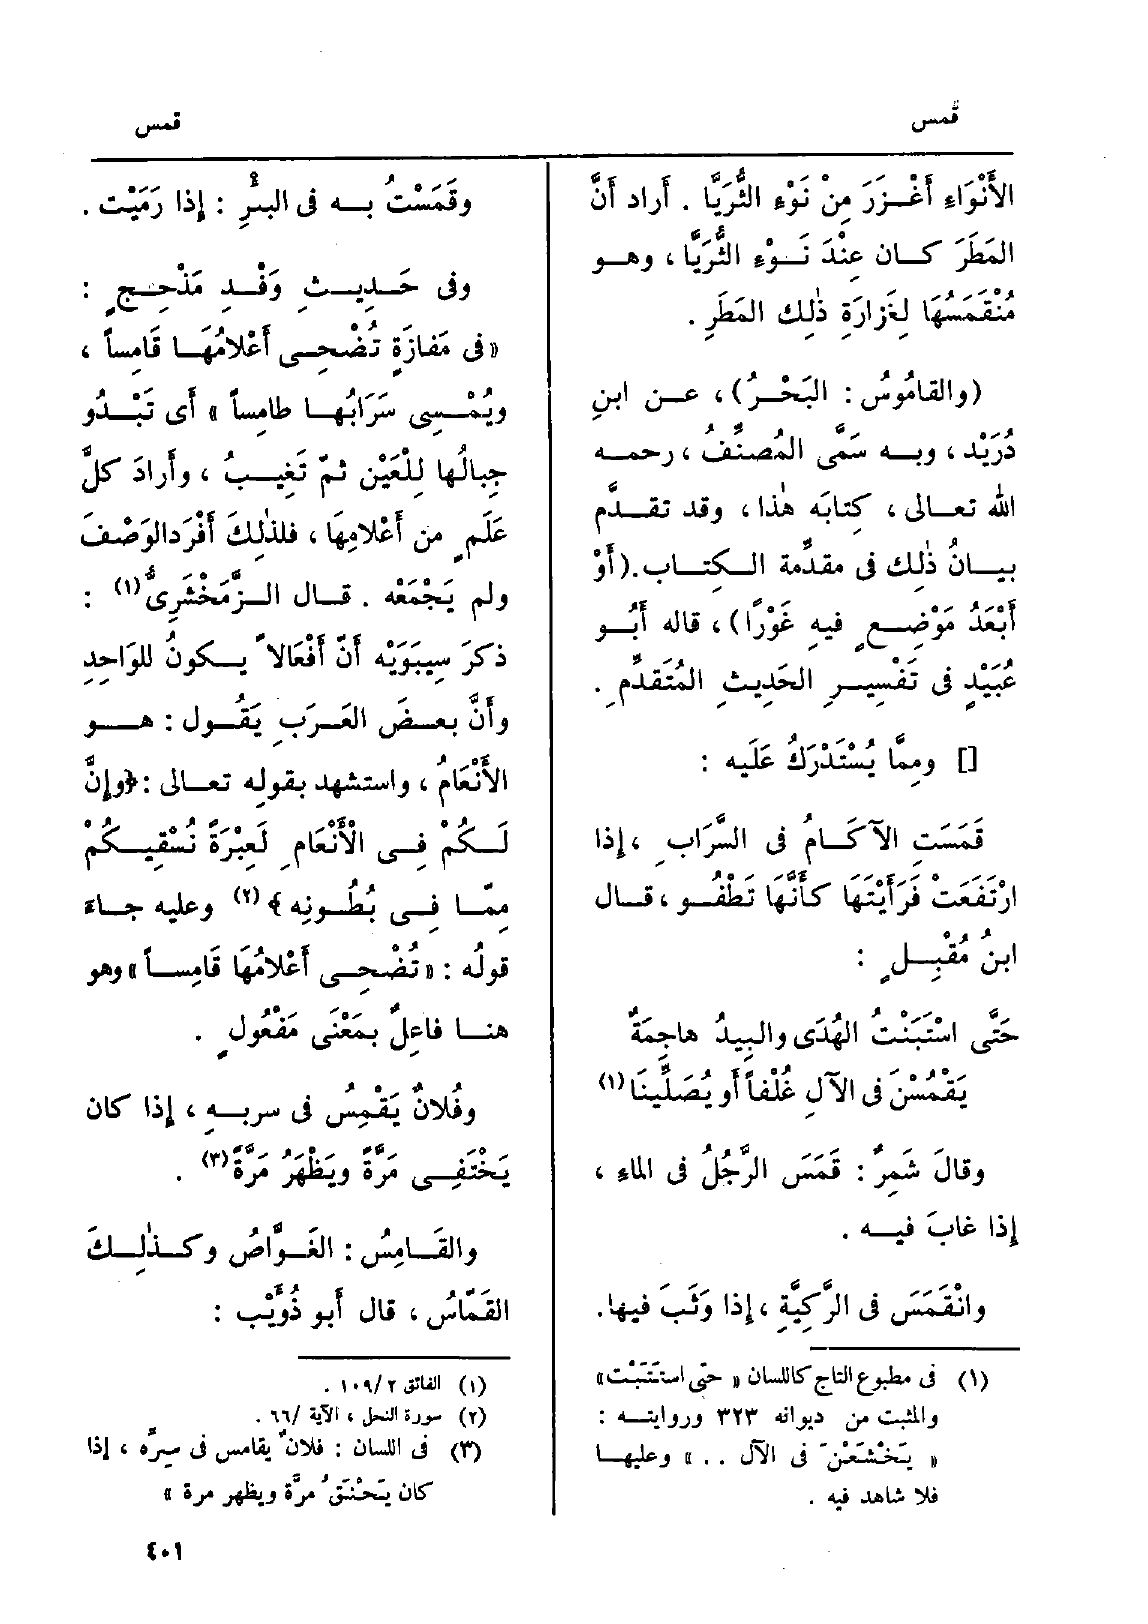 قمس
قمس
الأَنْوَاءِ أَغْزَرَ مِنْ نَوْءِ الثُّرَيَّا . أراد أَنَّ
المَطَرَ كان عِنْدَ نَوْءِ الثُّرَيَّا ، وهو
مُنْقَمَسُهَا لِغَزارَةِ ذٰلِك المَطَرِ .
(والقامُوسُ : البَحْرُ)، عن ابنِ
دُرَيْد ، وبه سَمَّى المُصنِّفُ ، رحمه
الله تعالى ، كِتابَه هٰذا ، وقد تقدَّم
بيانُ ذٰلك فى مقدِّمة الكتاب. (أَوْ
أَبْعَدُ مَوْضِعٍ فيه غَوْرًا) ، قاله أَبُو
عُبَيْدٍ فى تَفْسِيرِ الحَدِيثِ المُتَقدِّمِ .
[] ومِمَّا يُسْتَدْرَكُ عَلَيه :
قَمَسَتِ الآكَامُ فى السَّرَابِ ، إذا
ارْتَفَعَتْ فَرَأَيْتَهَا كَأَنَّهَا تَطْفُو ، قال
ابنُ مُقْبِلٍ :
حَتَّى اسْتَبَنْتُ الهُدَى والبِيدُ هاجِمَةٌ
يَقْمُسْنَ فى الآلِ غُلْفاً أَو يُصَلِّينَا (١)
وقالَ شَمِرٌ : قَمَسَ الرَّجُلُ فى الماءِ ،
إذا غابَ فيه .
وانْقَمَسَ فى الرَّكِيَّةِ ، إذا وَثَبَ فيها.
(١) فى مطبوع التاج كاللسان « حتى استتبت »
والمثبت من ديوانه ٣٢٣ وروايته :
« يَخْشَعْنَ فى الآل .. » وعليها
فلا شاهد فيه .
وقَمَسْتُ به فى البِئْرِ : إذا رَمَيْت .
وفى حَدِيثِ وَفْدِ مَذْحِجٍ :
«فى مَفازَةٍ تُضْحِى أَعْلامُهَا قَامِساً ،
ويُمْسِى سَرَابُها طامِساً » أى تَبْدُو
جِبالُها لِلْعَيْن ثمّ تَغِيبُ ، وأَرادَ كلَّ
عَلَمٍ من أَعْلامِهَا ، فلذٰلِكَ أَفْرَدالوَصْفَ
ولم يَجْمَعْه . قال الزَّمَخْشَرِىُّ (١) :
ذكرَ سِيبَوَيْه أَنّ أَفْعَالاً يكونُ للوَاحِدِ
وأَنَّ بعضَ العَرَبِ يَقُول : هو
الأَنْعَامُ ، واستشهد بقوله تعالى : ﴿وإنَّ
لَكُمْ فِى الْأَنْعَامِ لَعِبْرَةً نُسْقِيكُمْ
مِمّا فِى بُطُونِه ﴾ (٢) وعليه جاءَ
قولُه : « تُضْحِى أَعْلامُهَا قَامِساً » وهو
هنا فاعِلٌ بمَعْنَى مَفْعُولٍ .
وفُلانٌ يَقْمِسُ فى سربِهِ ، إذا كان
يَخْتَفِى مَرَّةً ويَظْهَرُ مَرَّةً(٣) .
والقامِسُ : الغَوَّاصُ وكذٰلِكَ
القَمّاسُ ، قال أَبو ذُؤَيْب :
(١) الفائق ٢ /١٠٩ .
(٢) سورة النحل ، الآية /٦٦ .
(٣) فى اللسان : فلانٌ يقامس فى سِرِّه ، إذا
كان يَخْتَنِقُ مرَّة ويظهر مرة »
٤٠١